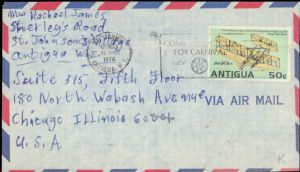 Mrs Rachael James
Sherley's Road
St. Johnsons Village
Antigua W.I.
1978
ANTIGUA
FOR CARNIVAL
JULY
ANTIGUA 50c
Suite 315, Fifth Floor
180 North Wabash Avenue
VIA AIR MAIL
Chicago Illinois
U.S.A.
K